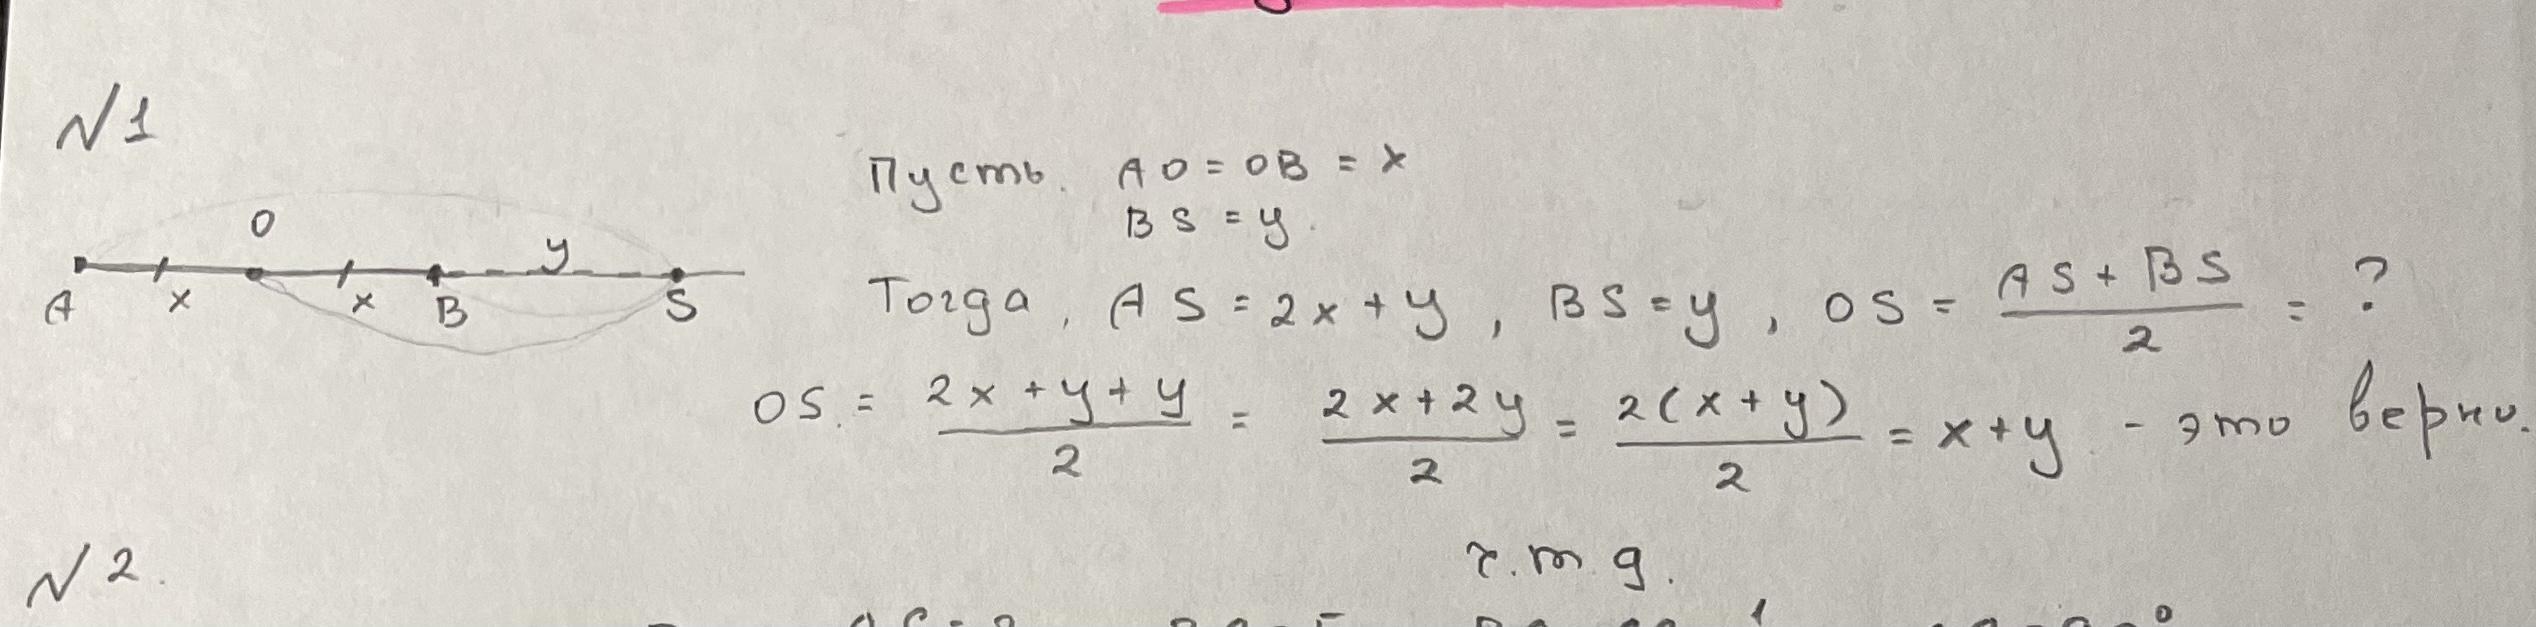 N1
O
y
A x x B S
Пусть. AO = OB = x
BS = y.
Тогда, AS = 2x + y, BS = y, OS = \frac{AS + BS}{2} = ?
OS. = \frac{2x + y + y}{2} = \frac{2x + 2y}{2} = \frac{2(x + y)}{2} = x + y - это верно.
ч.т.д.
N2.